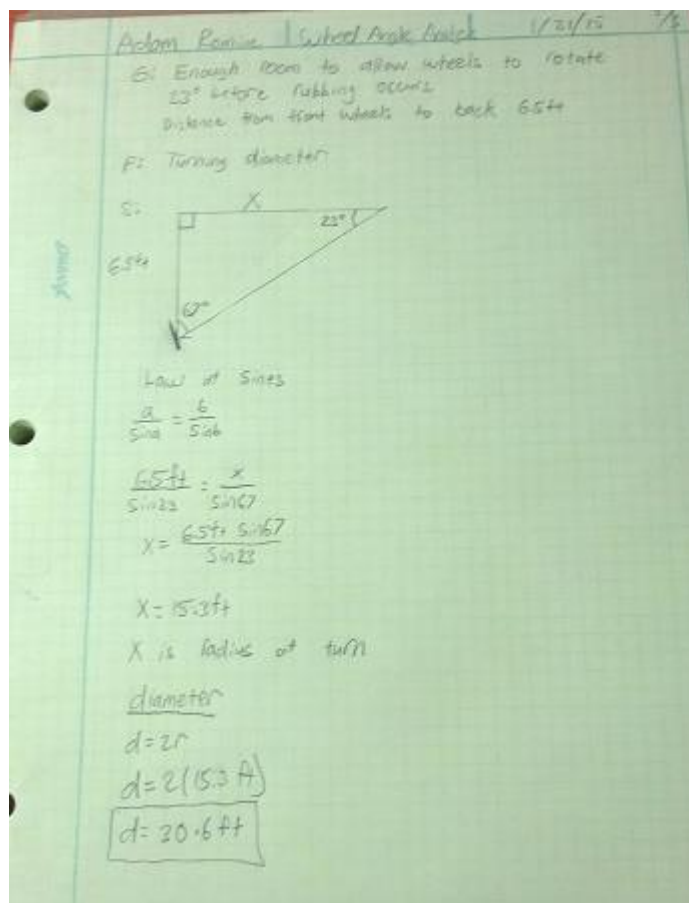 Adam | Wheel Angle 1/21/15
G: Enough room to allow wheels to rotate
23° before rubbing occurs
Distance from front wheels to back 6.5ft
F: Turning diameter
S:
X
23°
6.5ft
67°
Law of Sines
a/sin a = b/sin b
6.5ft/sin23 = x/sin67
x = 6.5ft sin67/sin23
X = 15.3ft
X is radius of turn
diameter
d=2r
d=2(15.3 ft)
d= 30.6 ft